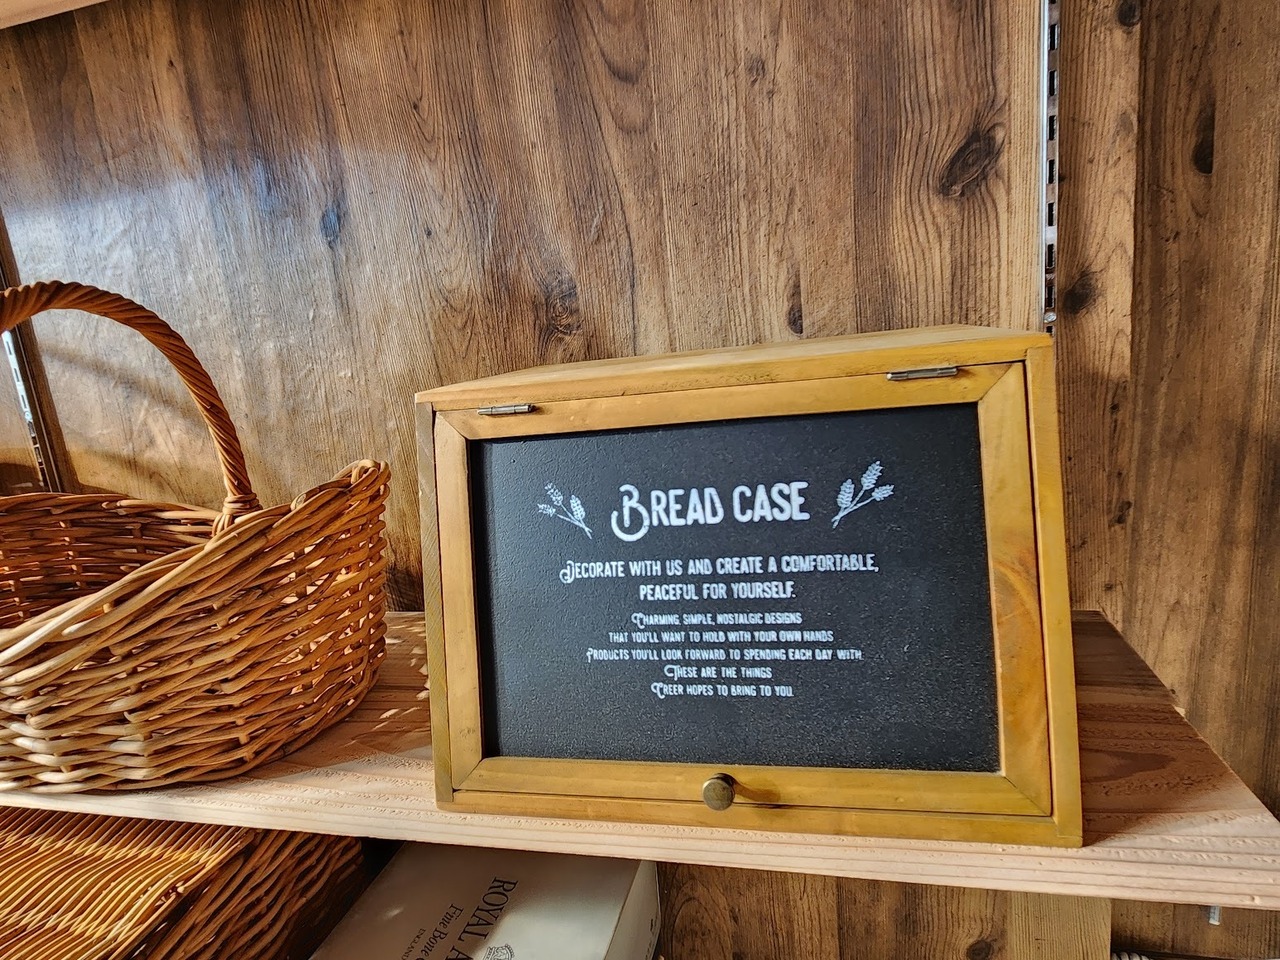 BREAD CASE
DECORATE WITH US AND CREATE A COMFORTABLE,
PEACEFUL FOR YOURSELF.
CHARMING, SIMPLE, NOSTALGIC DESIGNS
THAT YOU'LL WANT TO HOLD WITH YOUR OWN HANDS
PRODUCTS YOU'LL LOOK FORWARD TO SPENDING EACH DAY WITH
THESE ARE THE THINGS
CREER HOPES TO BRING TO YOU
ROYAL
Fine Bone
ENGLAND